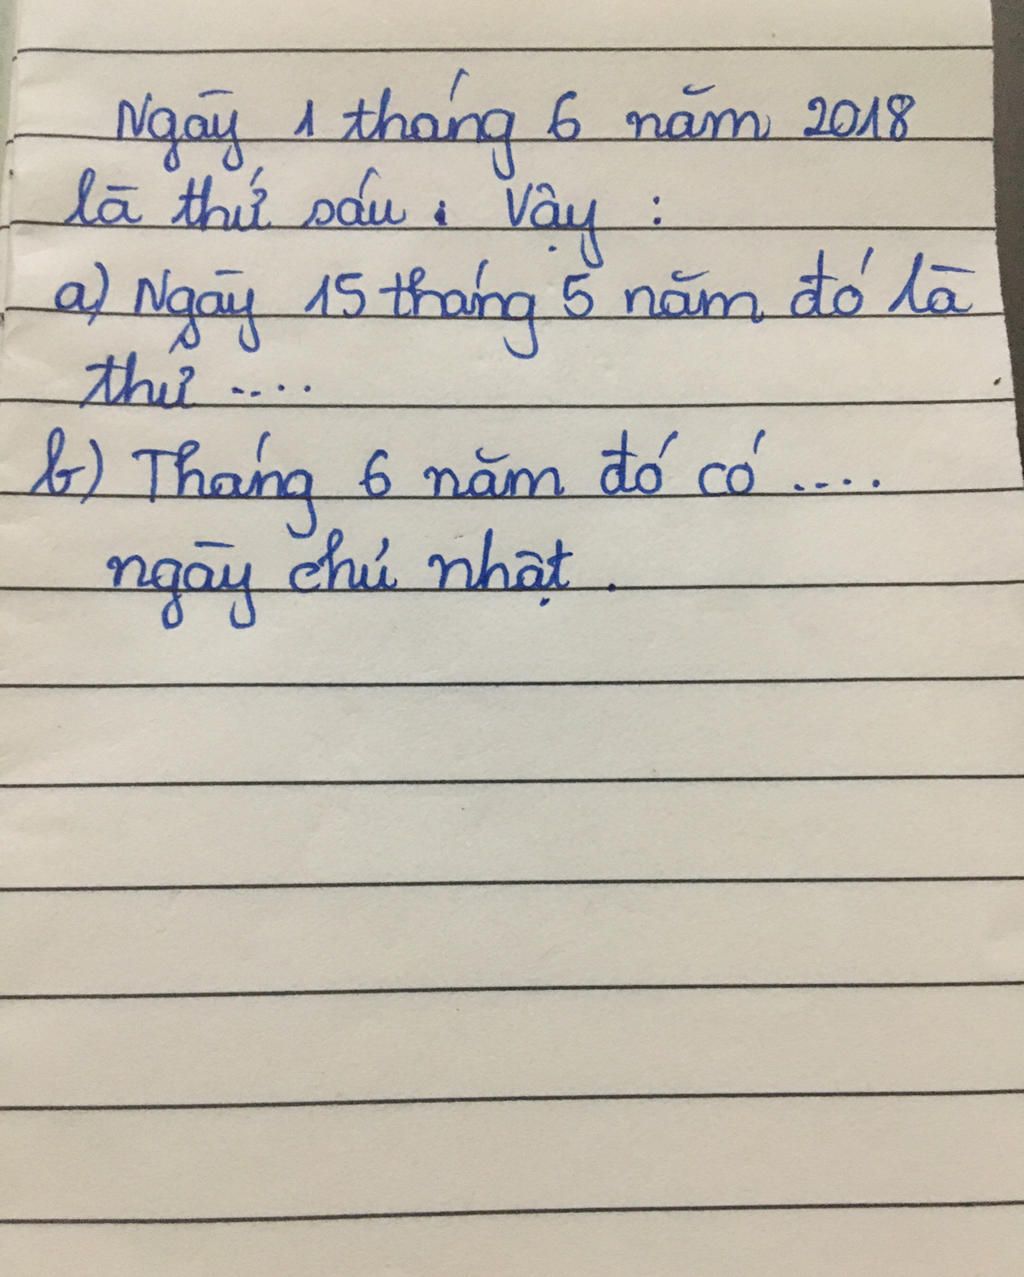 Ngày 1 tháng 6 năm 2018
là thứ sáu. Vậy :
a) Ngày 15 tháng 5 năm đó là
thứ ....
b) Tháng 6 năm đó có ....
ngày chủ nhật.